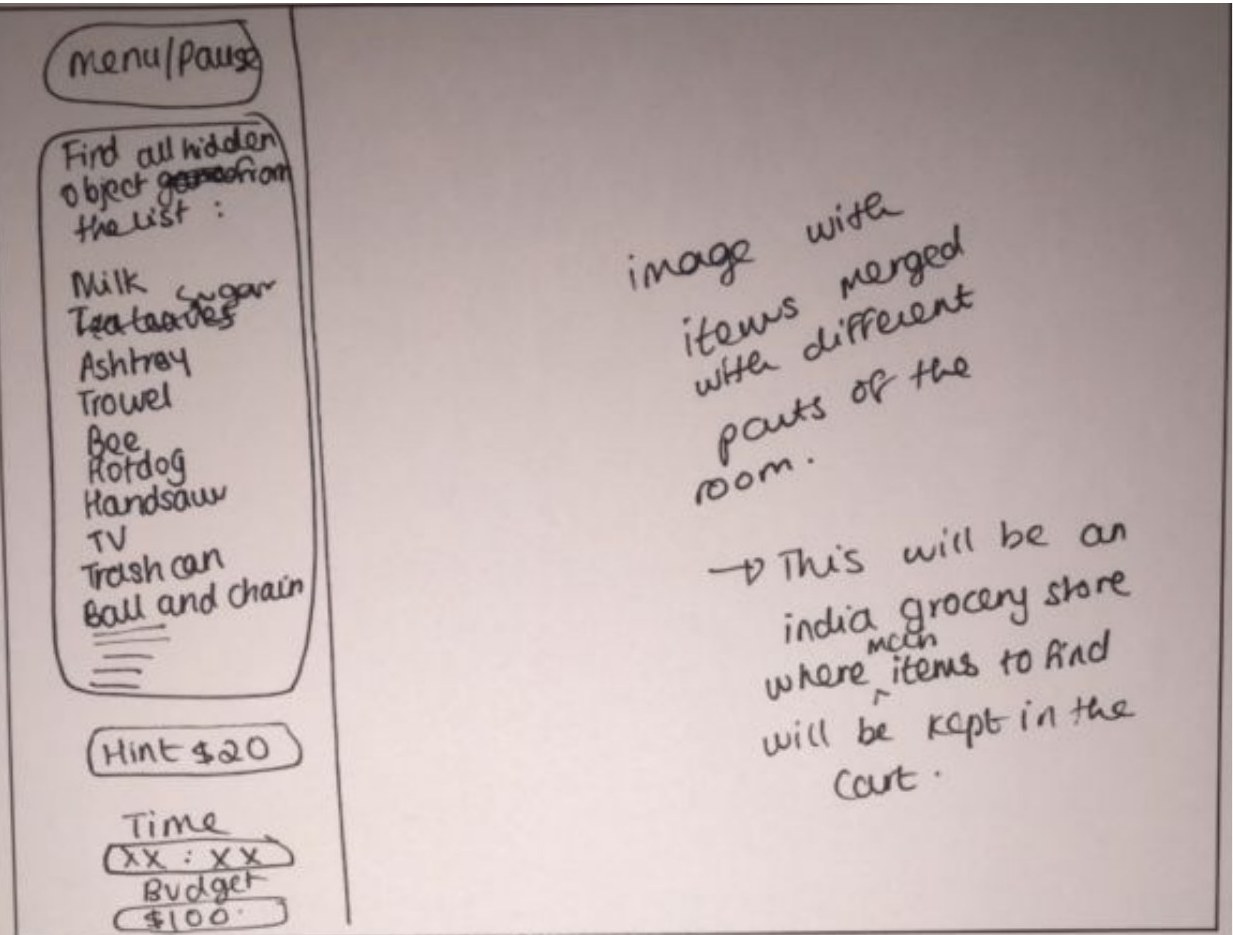 menu/Pause
Find all hidden
object from
the list :
Milk
Sugar
Tea leaves
Ashtray
Trowel
Bee
Hotdog
Handsaw
TV
Trash can
Ball and chain
Hint $20
Time
XX : XX
Budget
$100
image with
items merged
with different
parts of the
room.
→ This will be an
india grocery store
where main items to find
will be kept in the
cart.